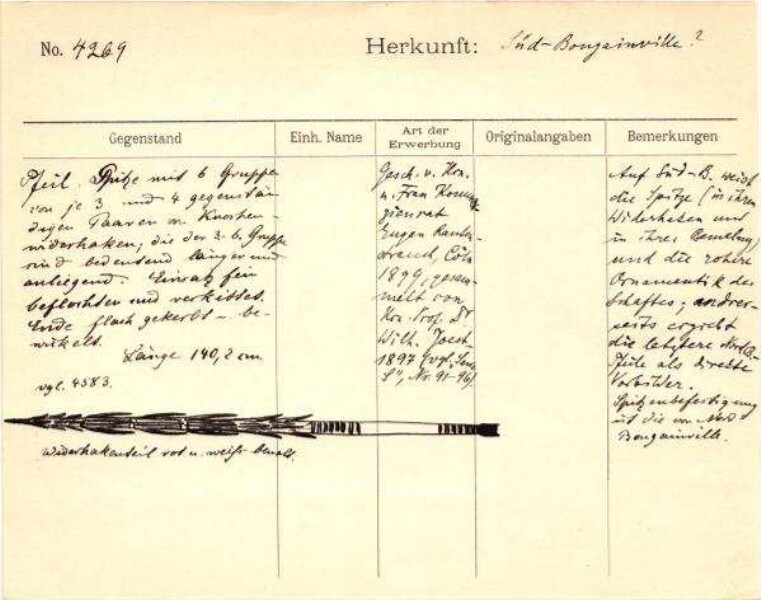 No. 4269
Herkunft: Süd-Bougainville?
Gegenstand
Einh. Name
Art der Erwerbung
Originalangaben
Bemerkungen
Pfeil. Spitze mit 6 Gruppen
von je 3 und 4 gegenstän-
digen Paaren v. Knochen-
widerhaken, die der 3.-6. Gruppe
sind bedeutend länger und
anliegend. Einsatz fein
beflochten und verkittet.
Ende flach gekerbt u. be-
wickelt.
Länge 140,2 cm.
vgl. 4583.
Widerhakenteil rot u. weiß bemalt.
Gesch. v. Hrn.
u. Frau Kommer-
zienrat
Eugen Rauten-
strauch, Cöln
1899, gesam-
melt von
Hrn. Prof. Dr
Wilh. Joest
1897 (vgl.
Nr. 91-96)
Auf Süd-B. weist
die Spitze (in ihren
Widerhaken und
in ihrer Bemalung)
und die rohere
Ornamentik des
Schaftes; andrer-
seits ergiebt
die letztere
Pfeile als direkte
Vorbilder.
Spitzenbefestigung
ist die von Nord
Bougainville.